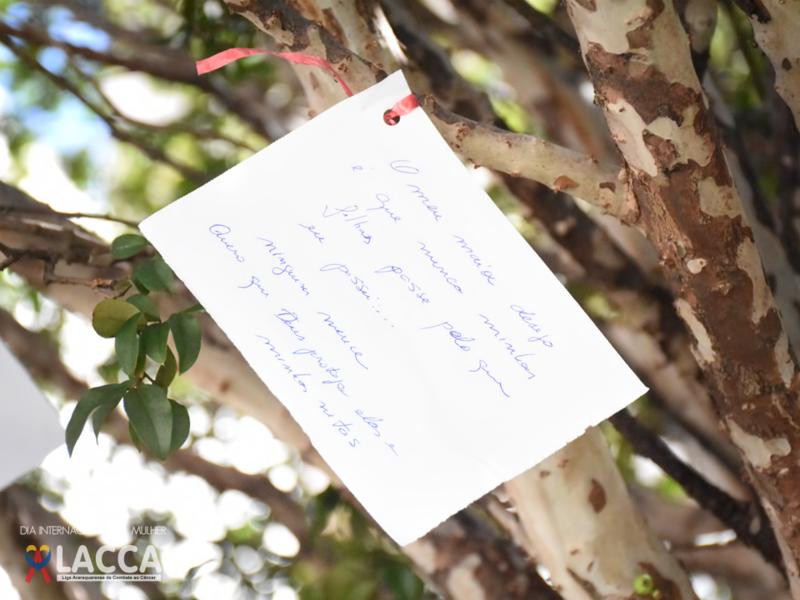 O meu maior desejo
é que nunca minhas
filhas passe pelo que
eu passei....
ninguem merece
Quero que Deus proteja elas e
minhas netas
DIA INTERNAC MULHER
LACCA
Liga Araraquarense de Combate ao Câncer